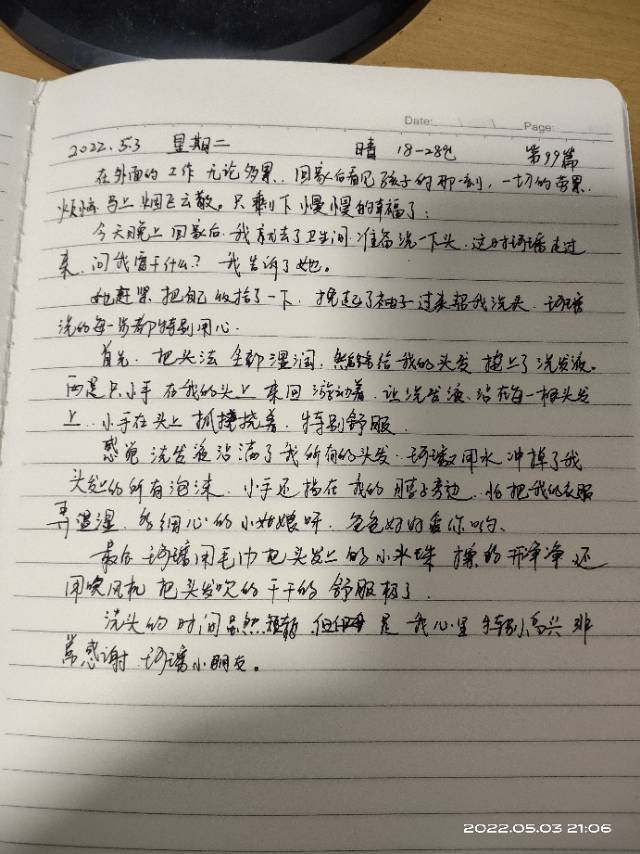 Date: Page:
2022.5.3 星期二 晴 18-28℃ 第99篇
在外面的工作无论多累，回家后看见孩子的那一刻，一切的劳累
烦恼马上烟飞云散。只剩下慢慢的幸福了；
今天晚上回家后，我就去了卫生间准备洗一下头，这时珂璠走过
来，问我害干什么？我告诉了她。
她赶紧把自己收拾了一下，挽起了袖子过来帮我洗头，珂璠
洗的每一步都特别用心。
首先，把头法全部湿润，然后给我的头发 上了洗发液。
两只小手在我的头上来回游动着，让洗发液沾在每一根头发
上，小手在头上抓挠着，特别舒服
感觉洗发液沾满了我所有的头发，珂璠又用水冲掉了我
头发上的所有泡沫，小手还挡在我的脖子旁边，怕把我的衣服
弄湿湿，多细心的小姑娘呀，爸爸好好爱你哟、
最后珂璠用毛巾把头发上的小水珠擦的干净净，还
用吹风机把头发吹的干干的舒服极了．
洗头的时间虽然短暂 但 是我心里特别高兴非
常感谢珂璠小朋友。
2022.05.03 21:06